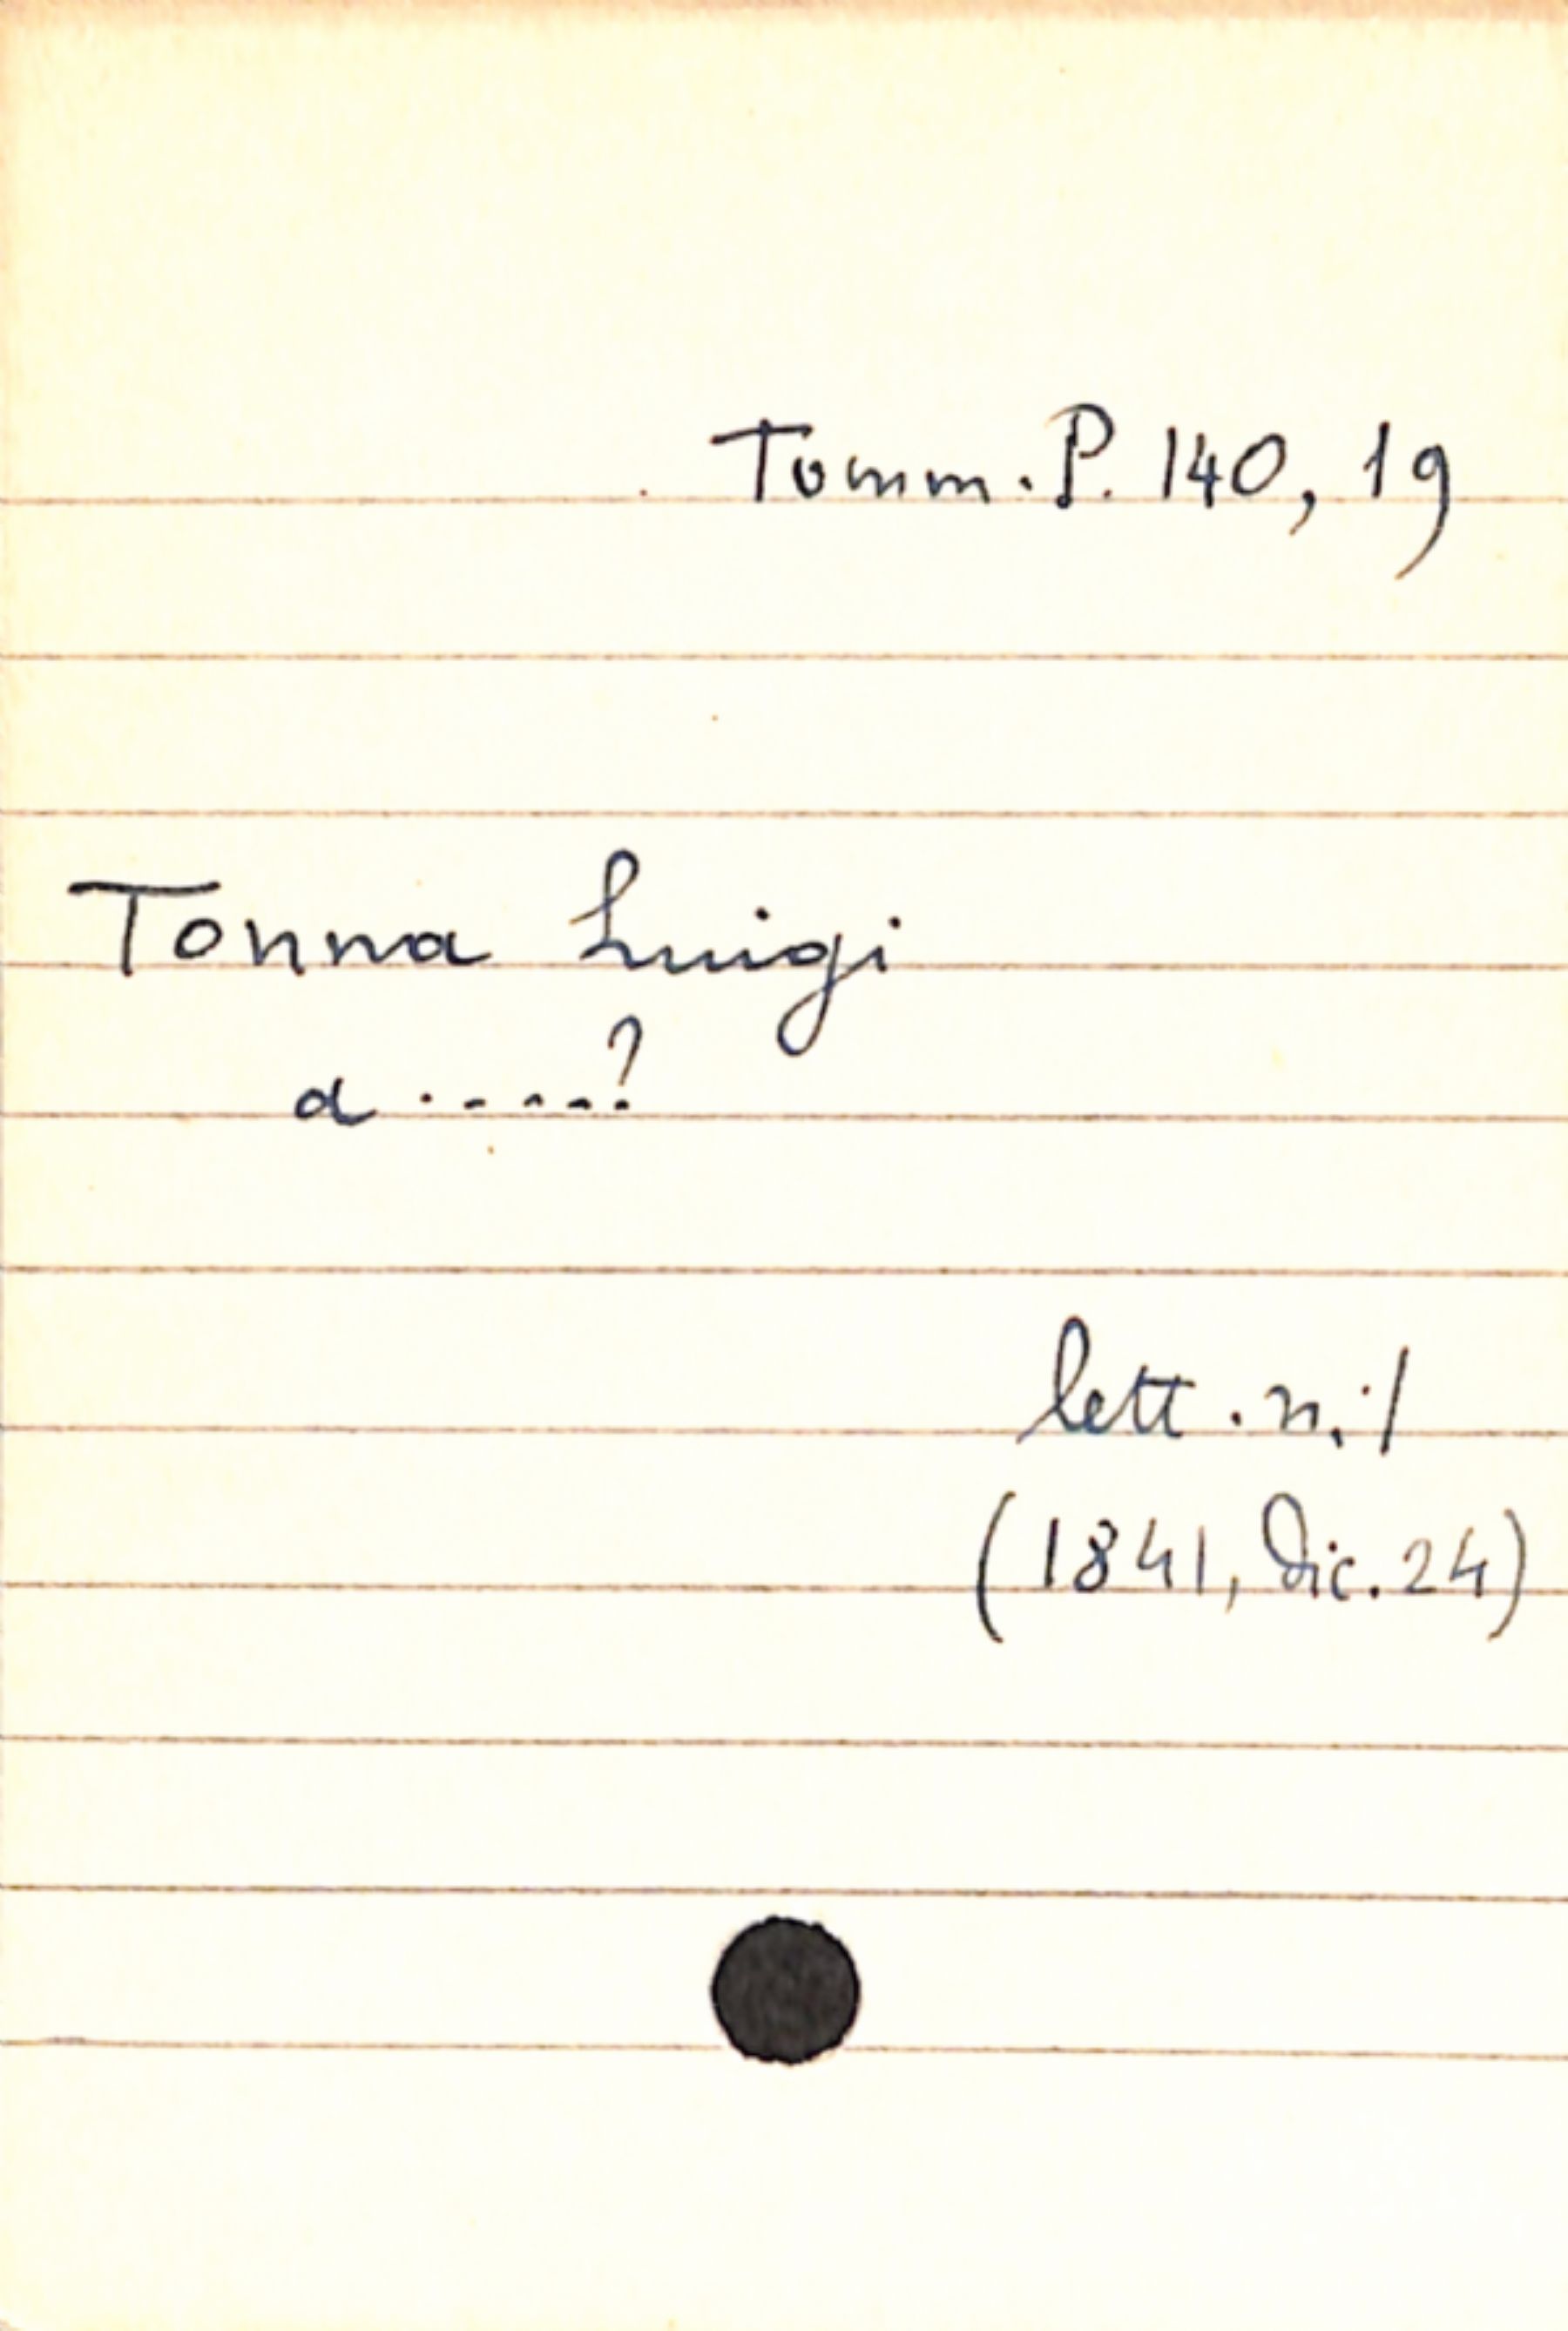 Tomm. P. 140, 19
Tonna Luigi
a .....?
lett. n. 1
(1841, dic. 24)